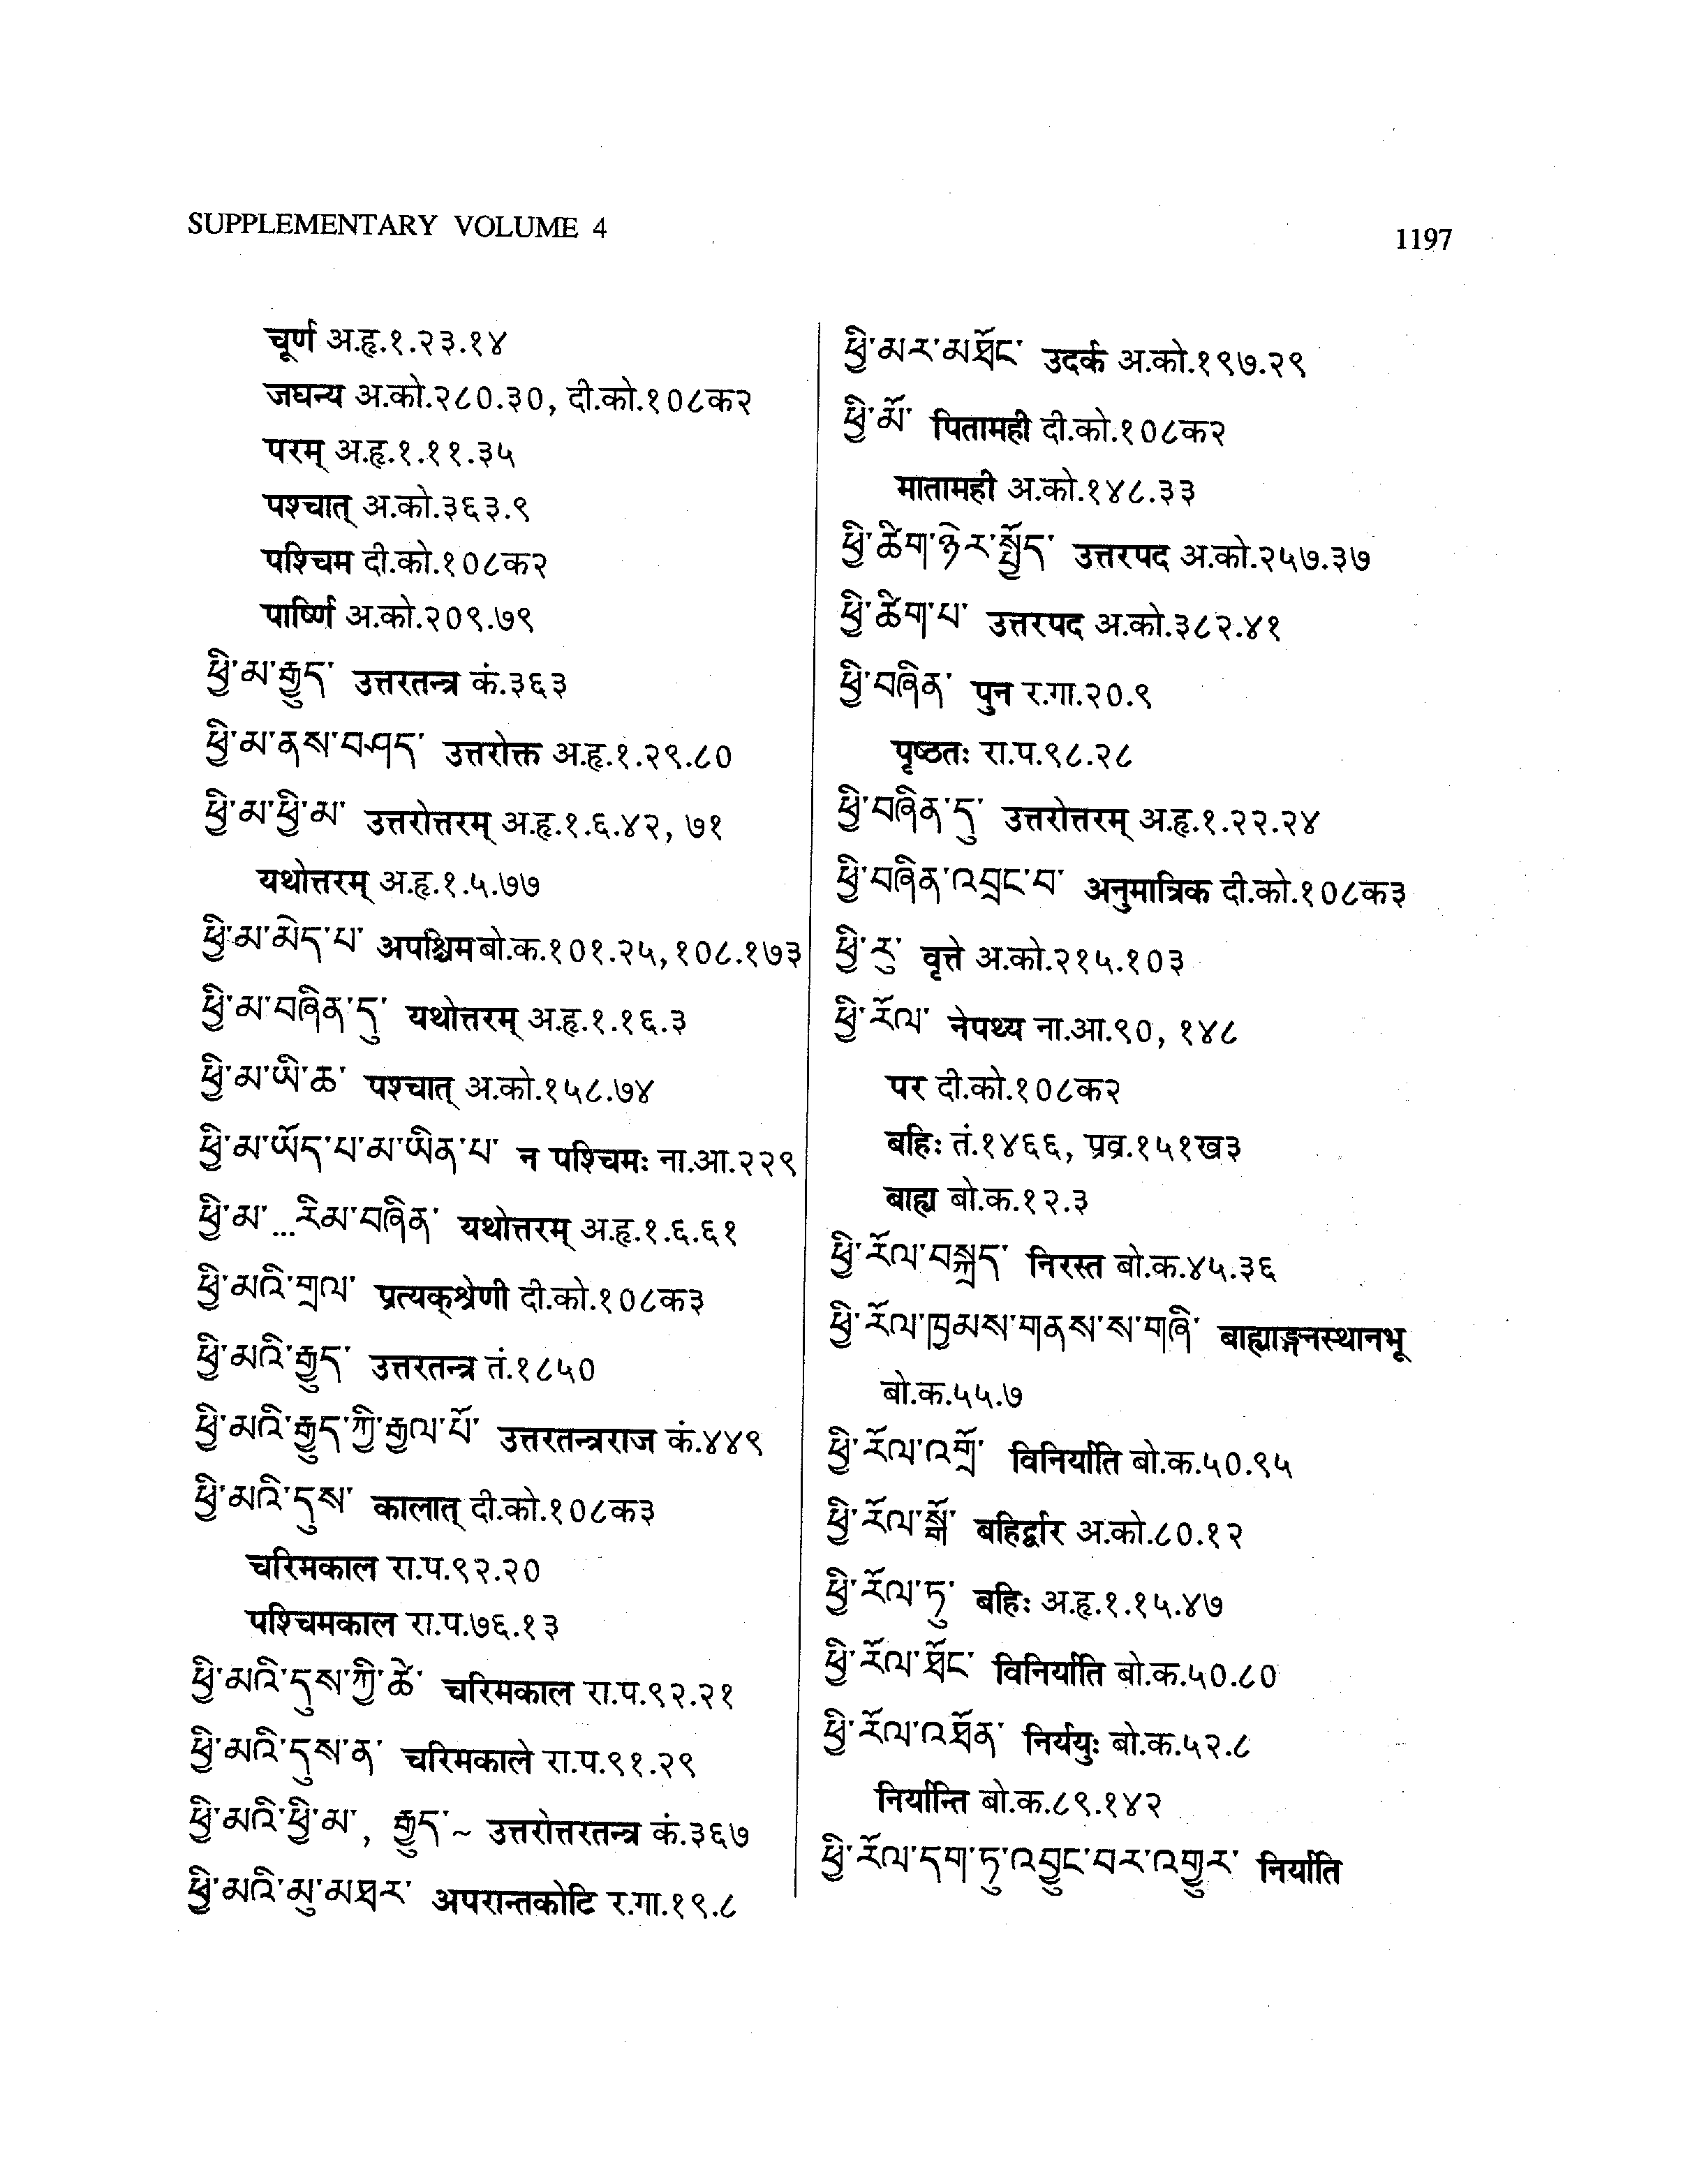 SUPPLEMENTARY VOLUME 4
1197
चूर्ण अ.हृ.१.२३.१४
जघन्य अ.को.२८०.३०, दी.को.१०८क२
परम् अ.हृ.१.११.३५
पश्चात् अ.को.३६३.९
पश्चिम दी.को.१०८क२
पार्ष्णि अ.को.२०९.७९
ཕྱི་མ་རྒྱུད་ उत्तरतन्त्र कं.३६३
ཕྱི་མ་ནས་བཤད་ उत्तरोक्त अ.हृ.१.२९.८०
ཕྱི་མ་ཕྱི་མ་ उत्तरोत्तरम् अ.हृ.१.६.४२, ७१
यथोत्तरम् अ.हृ.१.५.७७
ཕྱི་མ་མེད་པ་ अपश्चिम बो.क.१०१.२५, १०८.१७३
ཕྱི་མ་བཞིན་དུ་ यथोत्तरम् अ.हृ.१.१६.३
ཕྱི་མ་ཡི་ཆ་ पश्चात् अ.को.१५८.७४
ཕྱི་མ་ཡོད་པ་མ་ཡིན་པ་ न पश्चिमः ना.आ.२२९
ཕྱི་མ་...རིམ་བཞིན་ यथोत्तरम् अ.हृ.१.६.६१
ཕྱི་མའི་གྲལ་ प्रत्यक्श्रेणी दी.को.१०८क३
ཕྱི་མའི་རྒྱུད་ उत्तरतन्त्र तं.१८५०
ཕྱི་མའི་རྒྱུད་ཀྱི་རྒྱལ་པོ་ उत्तरतन्त्रराज कं.४४९
ཕྱི་མའི་དུས་ कालात् दी.को.१०८क३
चरिमकाल रा.प.९२.२०
पश्चिमकाल रा.प.७६.१३
ཕྱི་མའི་དུས་ཀྱི་ཚེ་ चरिमकाल रा.प.९२.२१
ཕྱི་མའི་དུས་ན་ चरिमकाले रा.प.९१.२९
ཕྱི་མའི་ཕྱི་མ་, རྒྱུད་~ उत्तरोत्तरतन्त्र कं.३६७
ཕྱི་མའི་མུ་མཐར་ अपरान्तकोटि र.गा.१९.८
ཕྱི་མར་མཐོང་ उदर्क अ.को.१९७.२९
ཕྱི་མོ་ पितामही दी.को.१०८क२
मातामही अ.को.१४८.३३
ཕྱི་ཚིག་ཉེར་སྤྱོད་ उत्तरपद अ.को.२५७.३७
ཕྱི་ཚིག་པ་ उत्तरपद अ.को.३८२.४१
ཕྱི་བཞིན་ पुन र.गा.२०.९
पृष्ठतः रा.प.९८.२८
ཕྱི་བཞིན་དུ་ उत्तरोत्तरम् अ.हृ.१.२२.२४
ཕྱི་བཞིན་འབྲང་བ་ अनुमात्रिक दी.को.१०८क३
ཕྱི་རུ་ वृत्ते अ.को.२१५.१०३
ཕྱི་རོལ་ नेपथ्य ना.आ.९०, १४८
पर दी.को.१०८क२
बहिः तं.१४६६, प्रव्र.१५१ख३
बाह्य बो.क.१२.३
ཕྱི་རོལ་བསྐྲད་ निरस्त बो.क.४५.३६
ཕྱི་རོལ་ཁྱམས་གནས་ས་གཞི་ बाह्याङ्गनस्थानभू
बो.क.५५.७
ཕྱི་རོལ་འགྲོ་ विनिर्याति बो.क.५०.९५
ཕྱི་རོལ་སྒོ་ बहिर्द्वार अ.को.८०.१२
ཕྱི་རོལ་ཏུ་ बहिः अ.हृ.१.१५.४७
ཕྱི་རོལ་ཐོང་ विनिर्याति बो.क.५०.८०
ཕྱི་རོལ་འཐོན་ निर्ययुः बो.क.५२.८
निर्यान्ति बो.क.८९.१४२
ཕྱི་རོལ་དག་ཏུ་འབྱུང་བར་འགྱུར་ निर्याति